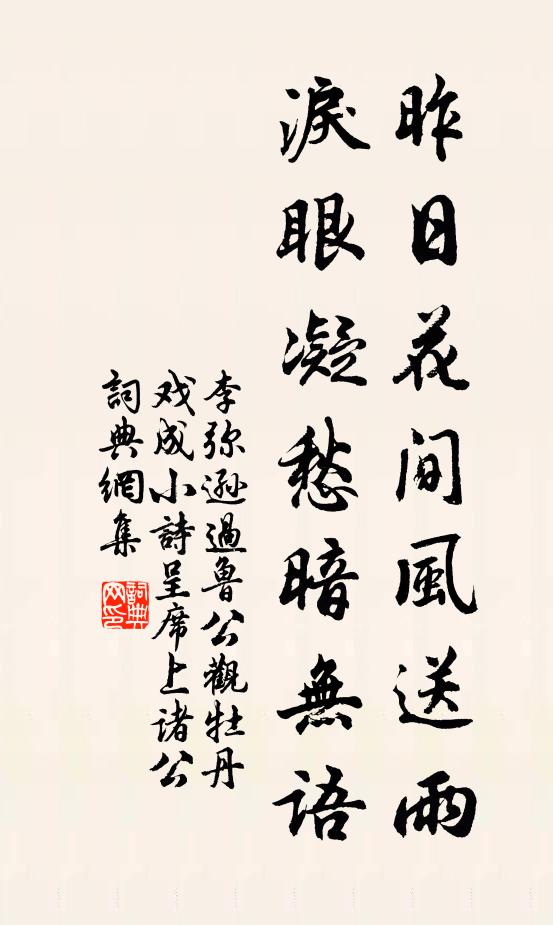 昨日花間風送雨
淚眼凝愁暗無語
李弥遜過魯公觀牡丹
戏成小詩呈席上诸公
詞典網集
詞典
网印